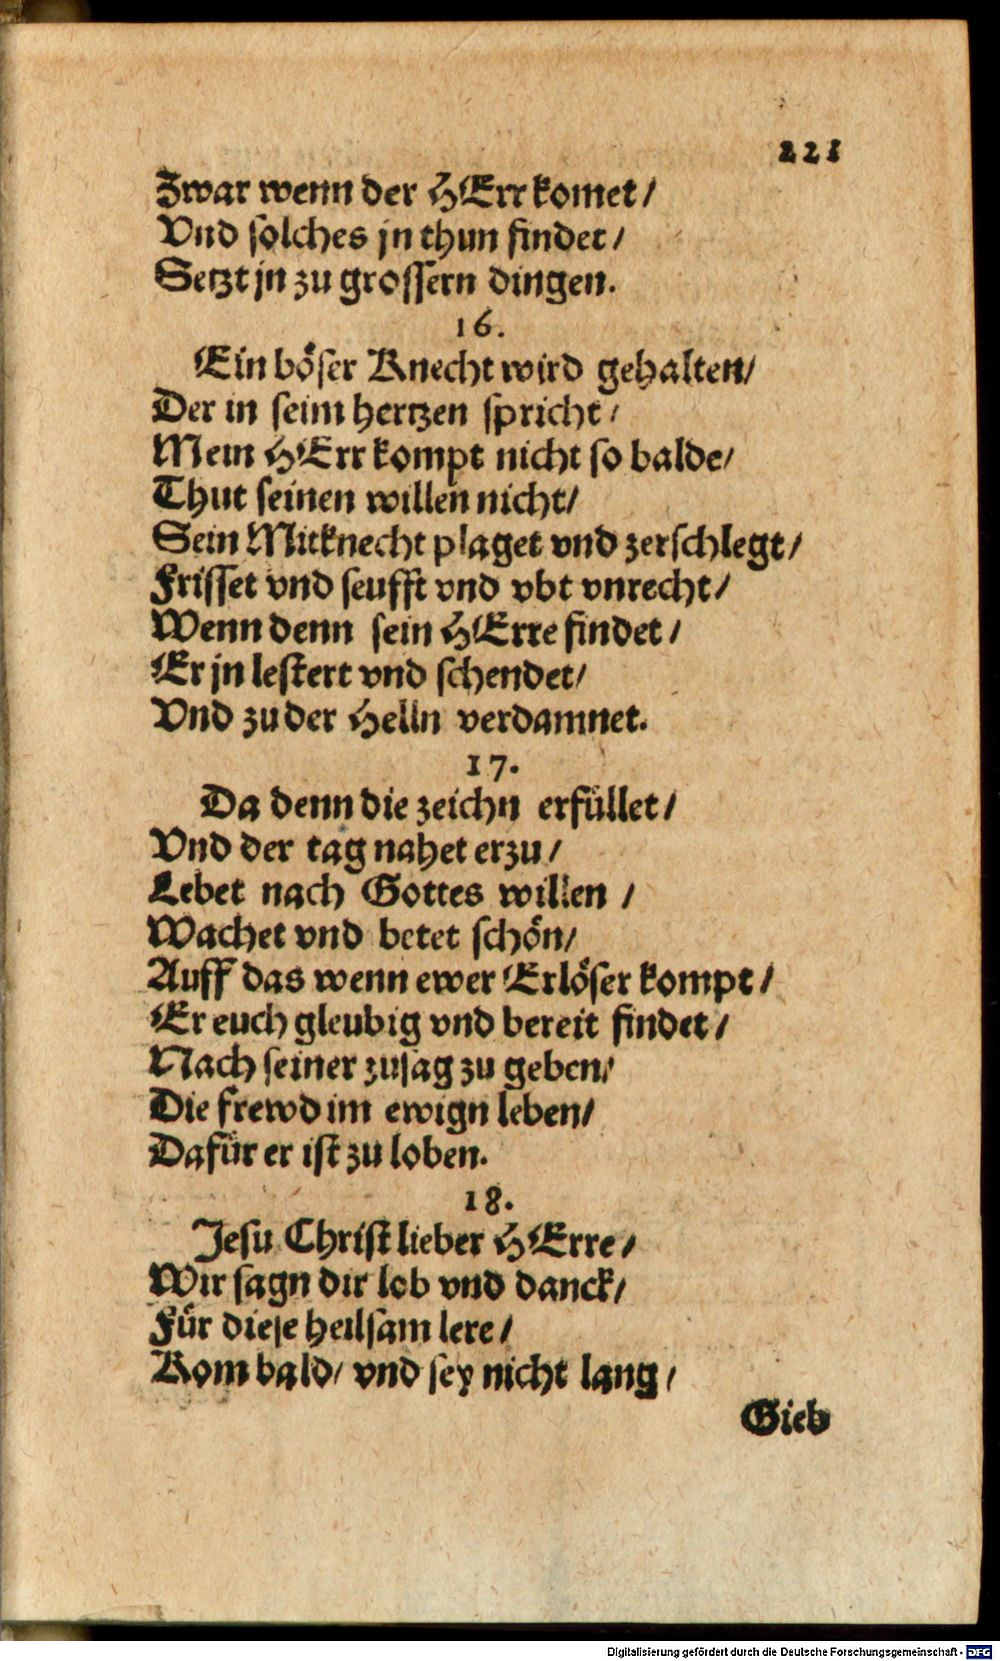 221
Zwar wenn der HErr komet/
Vnd solches jn thun findet/
Setzt jn zu grossern dingen.
16.
Ein böser Knecht wird gehalten/
Der in seim hertzen spricht/
Mein HErr kompt nicht so balde/
Thut seinen willen nicht/
Sein Mitknecht plaget vnd zerschlegt/
Frisset vnd seufft vnd vbt vnrecht/
Wenn denn sein HErre findet/
Er jn lestert vnd schendet/
Vnd zu der Helln verdamnet.
17.
Da denn die zeichn erfüllet/
Vnd der tag nahet erzu/
Lebet nach Gottes willen /
Wachet vnd betet schön/
Auff das wenn ewer Erlöser kompt/
Er euch gleubig vnd bereit findet/
Nach seiner zusag zu geben/
Die frewd im ewign leben/
Dafür er ist zu loben.
18.
Jesu Christ lieber HErre/
Wir sagn dir lob vnd danck/
Für diese heilsam lere/
Kom bald/ vnd sey nicht lang/
Gieb
Digitalisierung gefördert durch die Deutsche Forschungsgemeinschaft - DFG